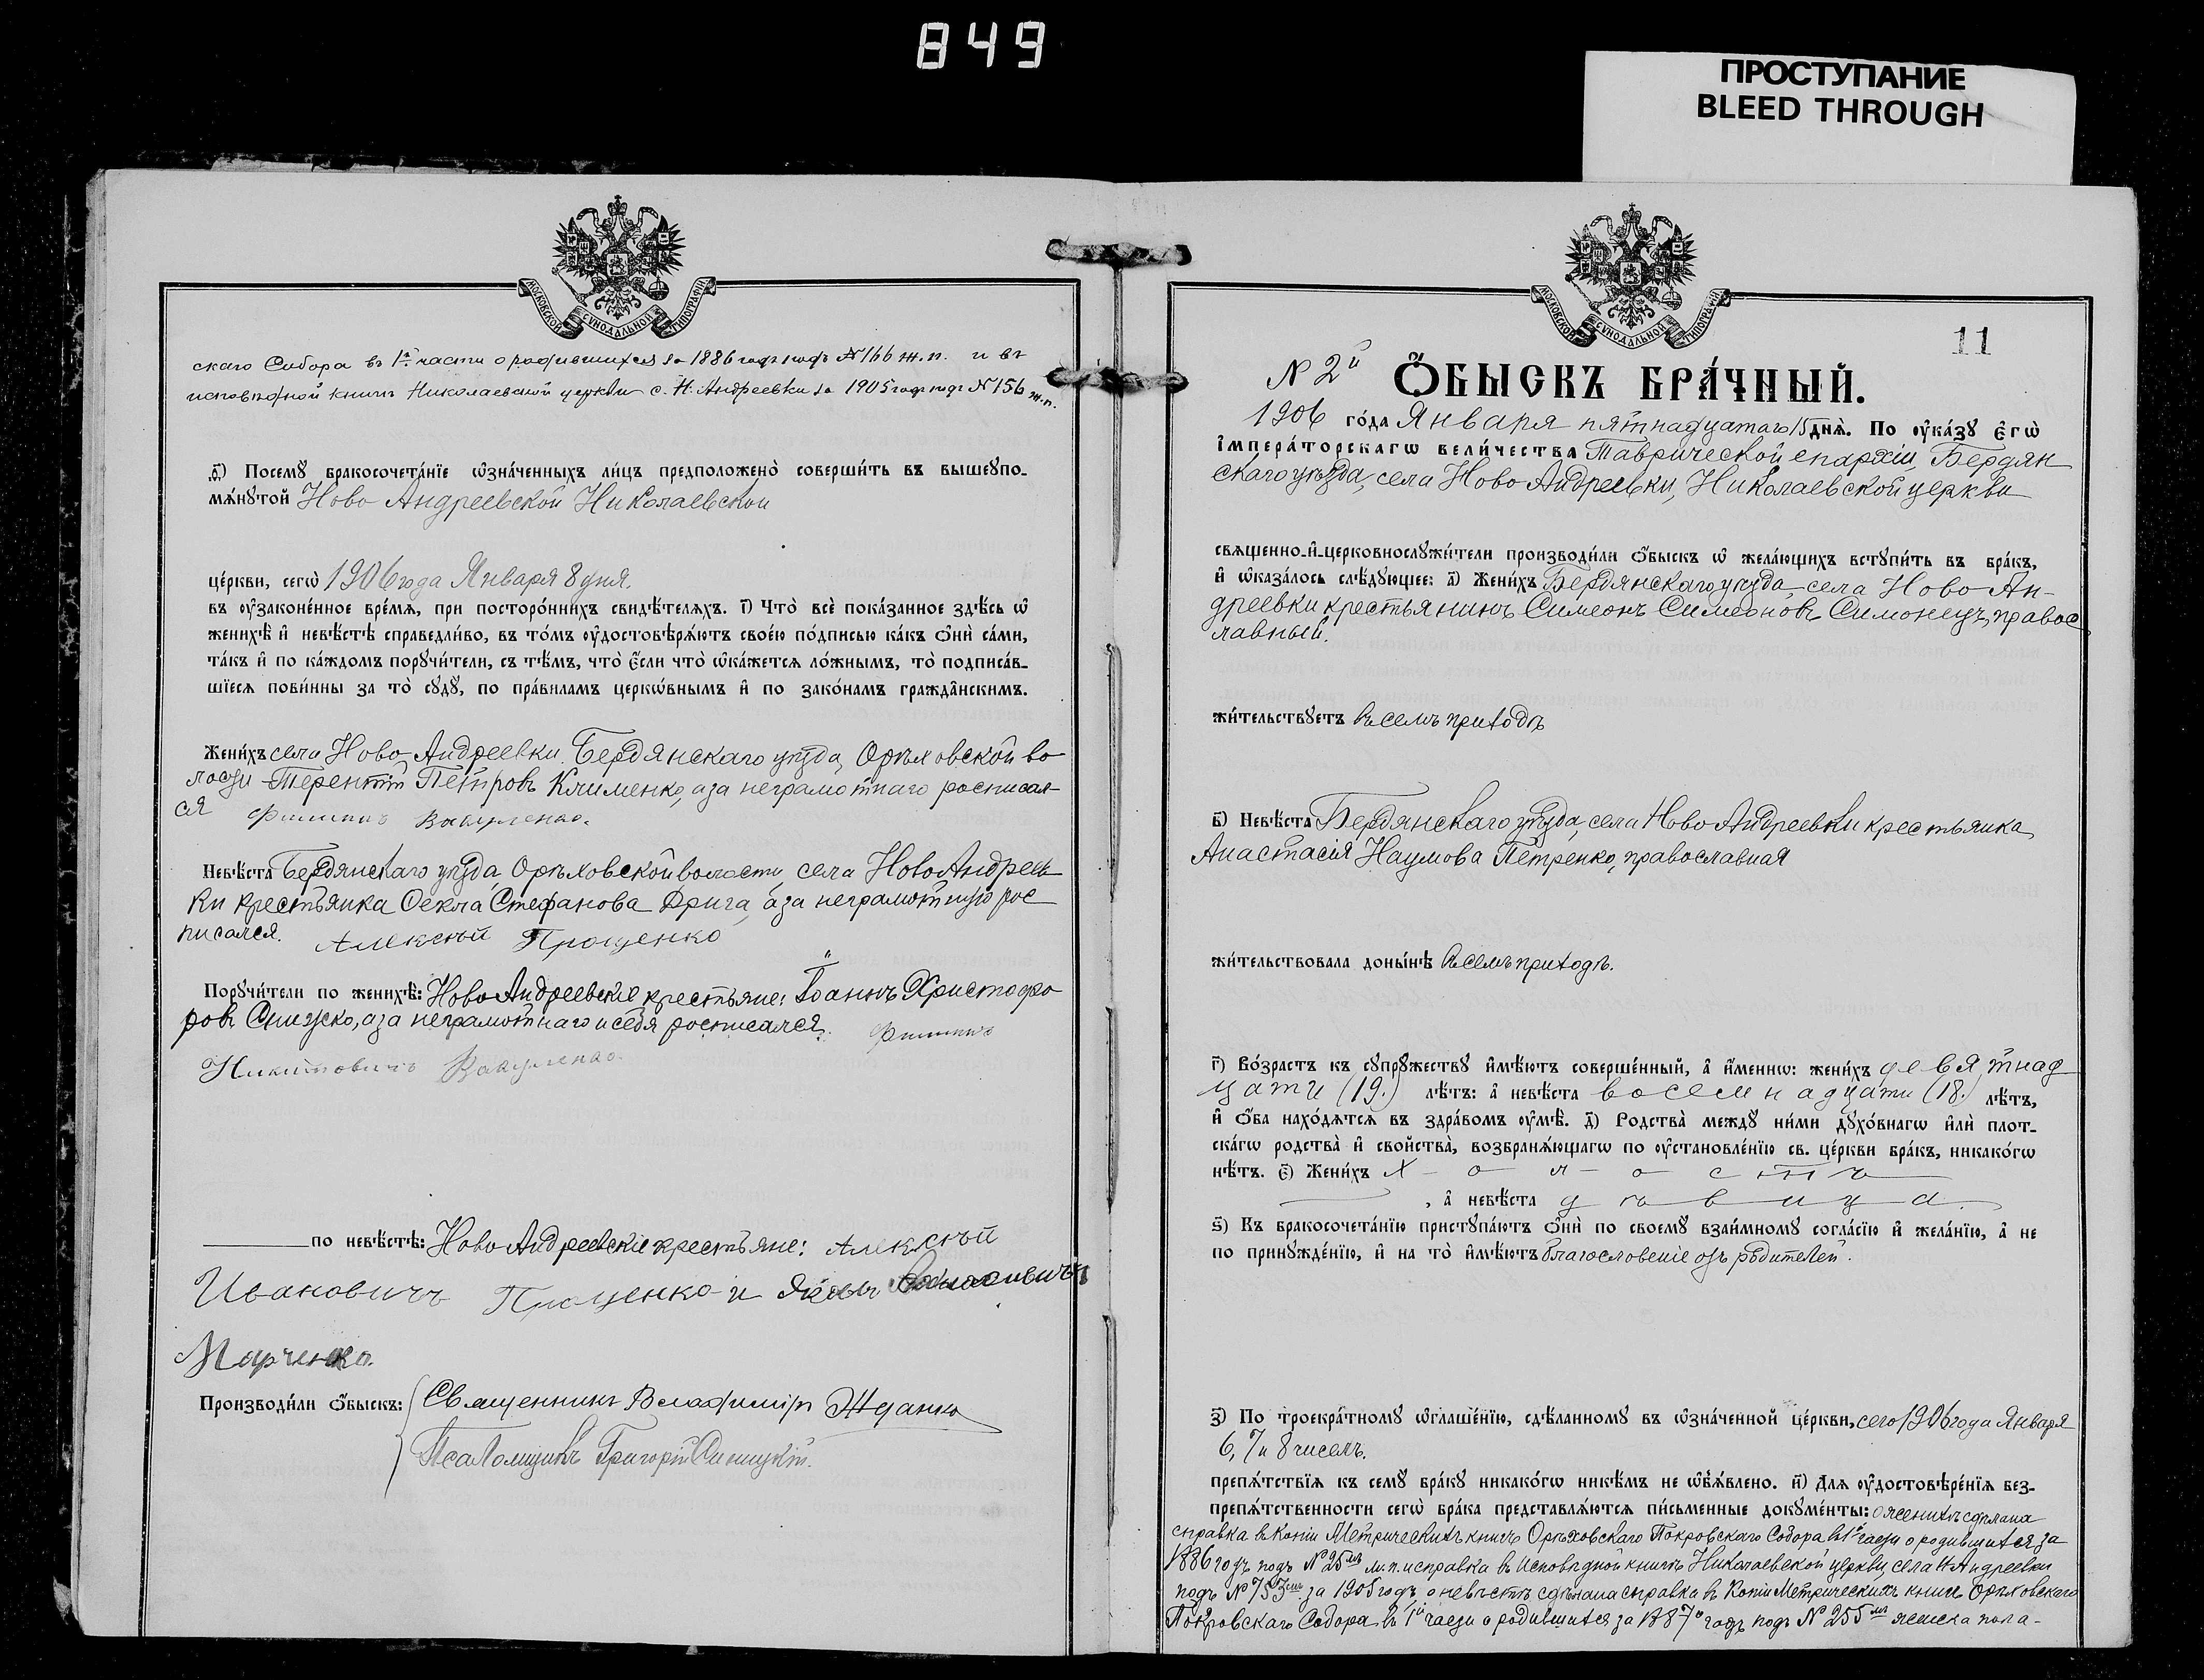 849
ПРОСТУПАНИЕ
BLEED THROUGH
МОСКОВСКОЙ СѴНОДАЛЬНОЙ ТИПОГРАФІИ
скаго Собора въ 1й части о родившихся за 1886 годъ подъ № 166 ж.п. и въ
исповѣдной книгѣ Николаевской церкви с. Н. Андреевки за 1905 годъ подъ № 156 ж.п.
Посемꙋ̀ бракосочета́нїе ѡ҆зна́ченныхъ ли́цъ предположено̀ соверши́ть въ вышеꙋпо-
мѧ́нꙋтой Ново Андреевской Николаевской
це́ркви, сегѡ̀ 1906 года Января 8 дня.
въ ᲂу҆законе́нное вре́мѧ, при посторо́ннихъ свидѣ́телѧхъ. і҃) Что̀ всѐ пока́занное здѣ́сь ѡ҆
женихѣ̀ и҆ невѣ́стѣ справедли́во, въ то́мъ ᲂу҆достовѣрѧ́ютъ свое́ю по́дписью ка́къ ѻ҆нѝ са́ми,
та́къ и҆ по ка́ждомъ порꙋчи́тели, съ тѣ́мъ, что̀ є҆́сли что̀ ѡ҆ка́жетсѧ ло́жнымъ, то̀ подписа́в-
шїесѧ пови́нны за то̀ сꙋдꙋ̀, по пра́виламъ церкѡ́внымъ и҆ по зако́намъ гражда́нскимъ.
Жени́хъ села Ново Андреевки Бердянскаго уѣзда, Орѣховской во
лости Терентій Петровъ Клименко, а за неграмотнаго росписал-
ся Филиппъ Вакуленко.
Невѣ́ста Бердянскаго уѣзда Орѣховской волости, села Ново Андреев
ки крестьянка Ѳекла Стефанова Дрига, а за неграмотную рос
писался. Алексѣй Прощенко
Порꙋчи́тели по женихѣ̀: Ново Андреевскіе крестьяне: Іоаннъ Христофо
ровъ а за неграмотнаго и себя росписался Филиппъ
Никитовичъ Вакуленко.
по невѣ́стѣ: Ново Андреевскіе крестьяне: Алексѣй
Ивановичъ Прощенко и Яковъ
Марченко.
Производи́ли ѻ҆́быскъ: Священникъ Владиміръ Жданко
Псаломщикъ Григорій
МОСКОВСКОЙ СѴНОДАЛЬНОЙ ТИПОГРАФІИ
11
№ 2й ѺБЫСКЪ БРА́ЧНЫЙ.
1906 го́да Января пятнадцатаго 15 днѧ̀. По ᲂу҆ка́зꙋ є҆гѡ̀
і҆мпера́торскагѡ вели́чества Таврической епархіи, Бердян
скаго уѣзда, села Ново Андреевки, Николаевской церкви
свѧщенно-и҆-церковнослꙋжи́тели производи́ли ѻ҆́быскъ ѡ҆ жела́ющихъ встꙋпи́ть въ бра́къ,
и҆ ѡ҆каза́лось слѣ́дꙋющее: а҃) Жени́хъ Бердянскаго уѣзда, села Ново Ан-
дреевки крестьянинъ Симеонъ Симеоновъ Симонецъ, правос
лавный.
жи́тельствꙋетъ въ семъ приходѣ
в҃) Невѣ́ста Бердянскаго уѣзда, села Ново Андреевки крестьянка
Анастасія Наумова Петренко, православная
жи́тельствовала доны́нѣ въ семъ приходѣ.
г҃) Во́зрастъ къ сꙋпрꙋ́жествꙋ и҆мѣ́ютъ соверше́нный, а҆ и҆́меннѡ: жени́хъ девятнад
цати (19.) лѣ́тъ: а҆ невѣ́ста восемнадцати (18.) лѣ́тъ,
и҆ ѻ҆́ба нахо́дѧтсѧ въ здра́вомъ ᲂу҆мѣ̀. д҃) Родства̀ междꙋ̀ ни́ми дꙋхо́внагѡ и҆лѝ плот-
ска́гѡ родства̀ и҆ свойства̀, возбранѧ́ющагѡ по ᲂу҆становле́нїю св. це́ркви бра́къ, никако́гѡ
нѣ́тъ. є҃) Жени́хъ холостъ
, а҆ невѣ́ста дѣвица.
ѕ҃) Къ бракосочета́нїю пристꙋпа́ютъ ѻ҆нѝ по своемꙋ̀ взаи́мномꙋ согла́сїю и҆ жела́нїю, а҆ не
по принꙋжде́нїю, и҆ на то̀ и҆мѣ́ютъ благословеніе отъ родителей.
з҃) По троекра́тномꙋ ѡ҆глаше́нїю, сдѣ́ланномꙋ въ ѡ҆зна́ченной це́ркви, сего 1906 года Января
6, 7 и 8 чиселъ.
препѧ́тствїѧ къ семꙋ̀ бра́кꙋ никако́гѡ никѣ́мъ не ѡ҆б̾ѧ́влено. и҃) Длѧ ᲂу҆достовѣре́нїѧ без-
препѧ́тственности сегѡ̀ бра́ка представлѧ́ютсѧ пи́сьменные докꙋме́нты: о женихѣ сдѣлана
справка въ копіи Метрическихъ книгъ Орѣховскаго Покровскаго Собора въ 1й части о родившихся за
1886 годъ подъ № 25мъ м.п. и справка въ исповѣдной книгѣ Николаевской церкви, села Н Андреевки
подъ № 753мъ за 1905 годъ, о невѣстѣ сдѣлана справка въ копіи Метрическихъ книгъ Орѣховскаго
Покровскаго Собора въ 1й части о родившихся за 1887й годъ подъ № 255мъ женска пола-